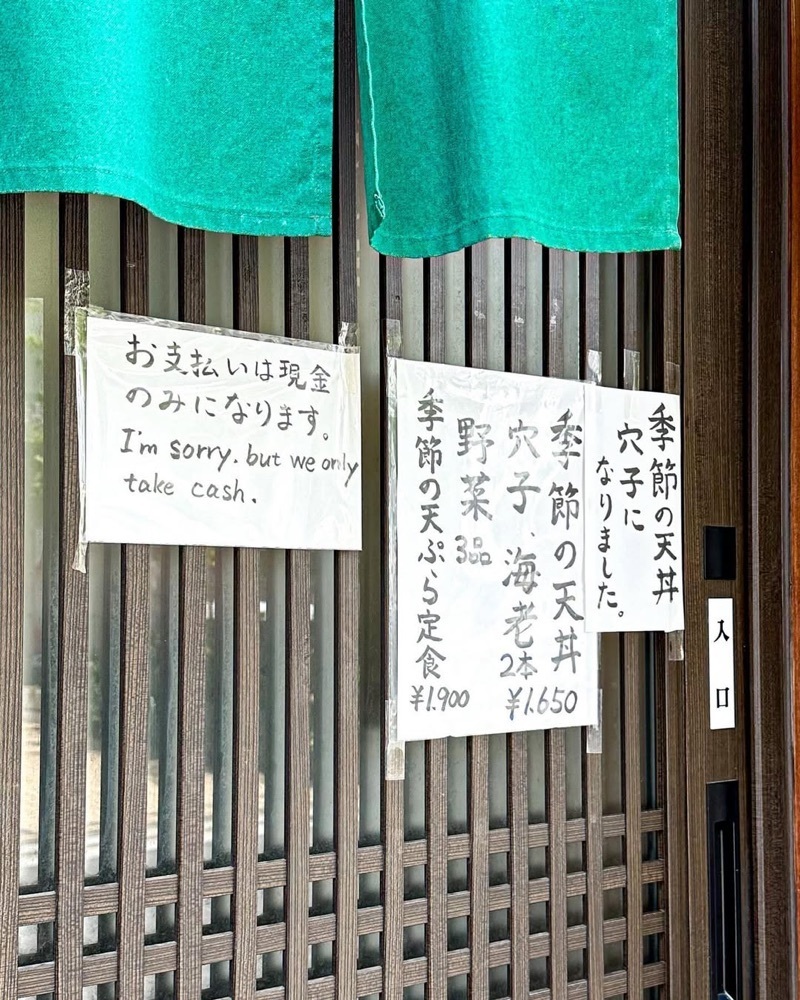 お支払いは現金
のみになります。
I'm sorry. but we only
take cash.
季節の天丼
穴子に
なりました。
季節の天丼
穴子、海老2本
野菜3品
¥1.650
季節の天ぷら定食
¥1.900
入口